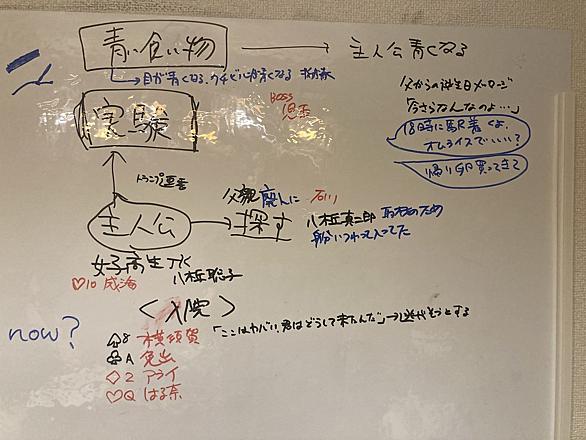 青い食い物 → 主人公青くなる
→目が青くなる、クチビルが青くなる
実験
Boss
児玉
父からの誕生日メッセージ
「今さらなんなのよ…」
18時に駅着くよ、
オムライスでいい?
帰りに卵買ってきて
トランプ
父親 廃人に 石川
主人公 → 探す
八木正真二郎 取材のため
身分いつわって入ってた
女子高生 JK
八木正聡子
♡10 成海
<入院>
now?
♤8 横須賀
「ここはヤバい、君はどうして来たんだ」→逃がそうとする
♧A 児出
◇2 アライ
♡Q はる奈